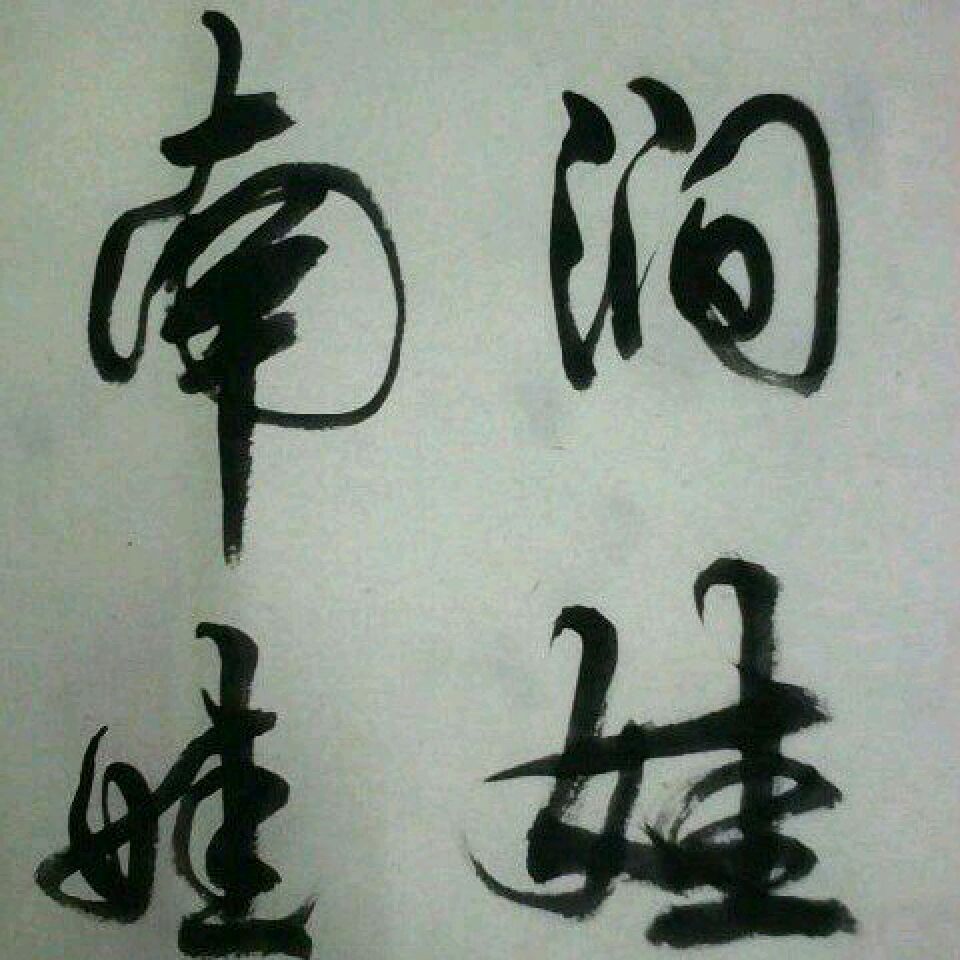 南涧
娃娃